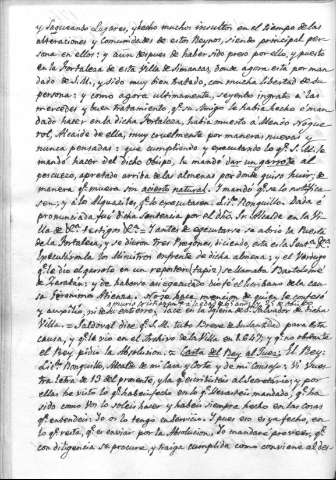 y saqueando Lugares, y hecho muchos insultos en el tiempo de las
alteraciones y Comunidades de estos Reynos, siendo principal per-
sona en ellas: y aun despues de haber sido preso por ello, y puesto
en la Fortaleza de esta Villa de Simancas, donde agora está por man-
dado de S.M., y sido muy bien tratado, con mucha libertad de su
persona; y como agora ultimamente, seyendo ingrato á las
mercedes y buen tratamiento qe. su Magd. le había hecho é man-
dado hacer en la dicha Fortaleza, habia muerto a Alonso Nogue-
rol, Alcaide de ella, muy cruelmente por maneras nuevas y
nunca pensadas: que cumpliendo y executando lo qe. S.M. le
mandó hacer del dicho Obispo, le mandó dar un garrote al
pescuezo, apretado arriba de las almenas por donde quiso huir; de
manera qe. muera von acierto natural. I mandó qe. se lo notifica-
sen; y a los Alguaciles, qe. lo executaren. Licdo. Ronquillo. Dada é
pronunciada fué dicha Sentencia por el dho. Sr. Alcalde en la Vi-
lla de &c. testigos &c. = I antes de executarse se abrió la Puerta
de la Fortaleza, y se dieron tres Pregones, diciendo, esta es la Justa. &c.
Ixecutáronla los Ministros enfrente de dicha almena; y el Verdugo
qe. le dio el garrote en un reporton (tapia) se llamaba Bartolomé
de Zaratán; y de haberse asi executado dió fé el Escribano de la cau-
sa Geronimo Atienza. No se hace mencion de quien le confesó
y auxilió, ni de su entierro; iace en la Iglesia de S. Salvador de dicha
Villa. = Saldoval dice qe. S.M. tubo Breve de Su Santidad para esta
causa, y qe. lo vió en el Archivo de la Villa en 1.647; y qe. no obstante
el Rey pidió la Absolucion. = Carta del Rey al Juez: El Rey:
Licdo. Ronquillo, Alcalde de mi casa y Corte y de mi Consejo: Vi vues-
tra letra de 23 del presente, y la qe. escribisteis al Secretario; y por
ellas he visto lo qe. habeis fecho en lo qe. llevardeis mandado, qe. ha
sido como Vos lo soleis hacer y habeis siempre hecho en las cosas
qe. entendeis: Io os lo tengo en servicio. I pues eso es ya fecho, en
lo qe. resta, qe. es enviar por la Absolucion, Io mandaré proveer, qe.
con diligencia se procure, y traiga cumplida como conviene al des-